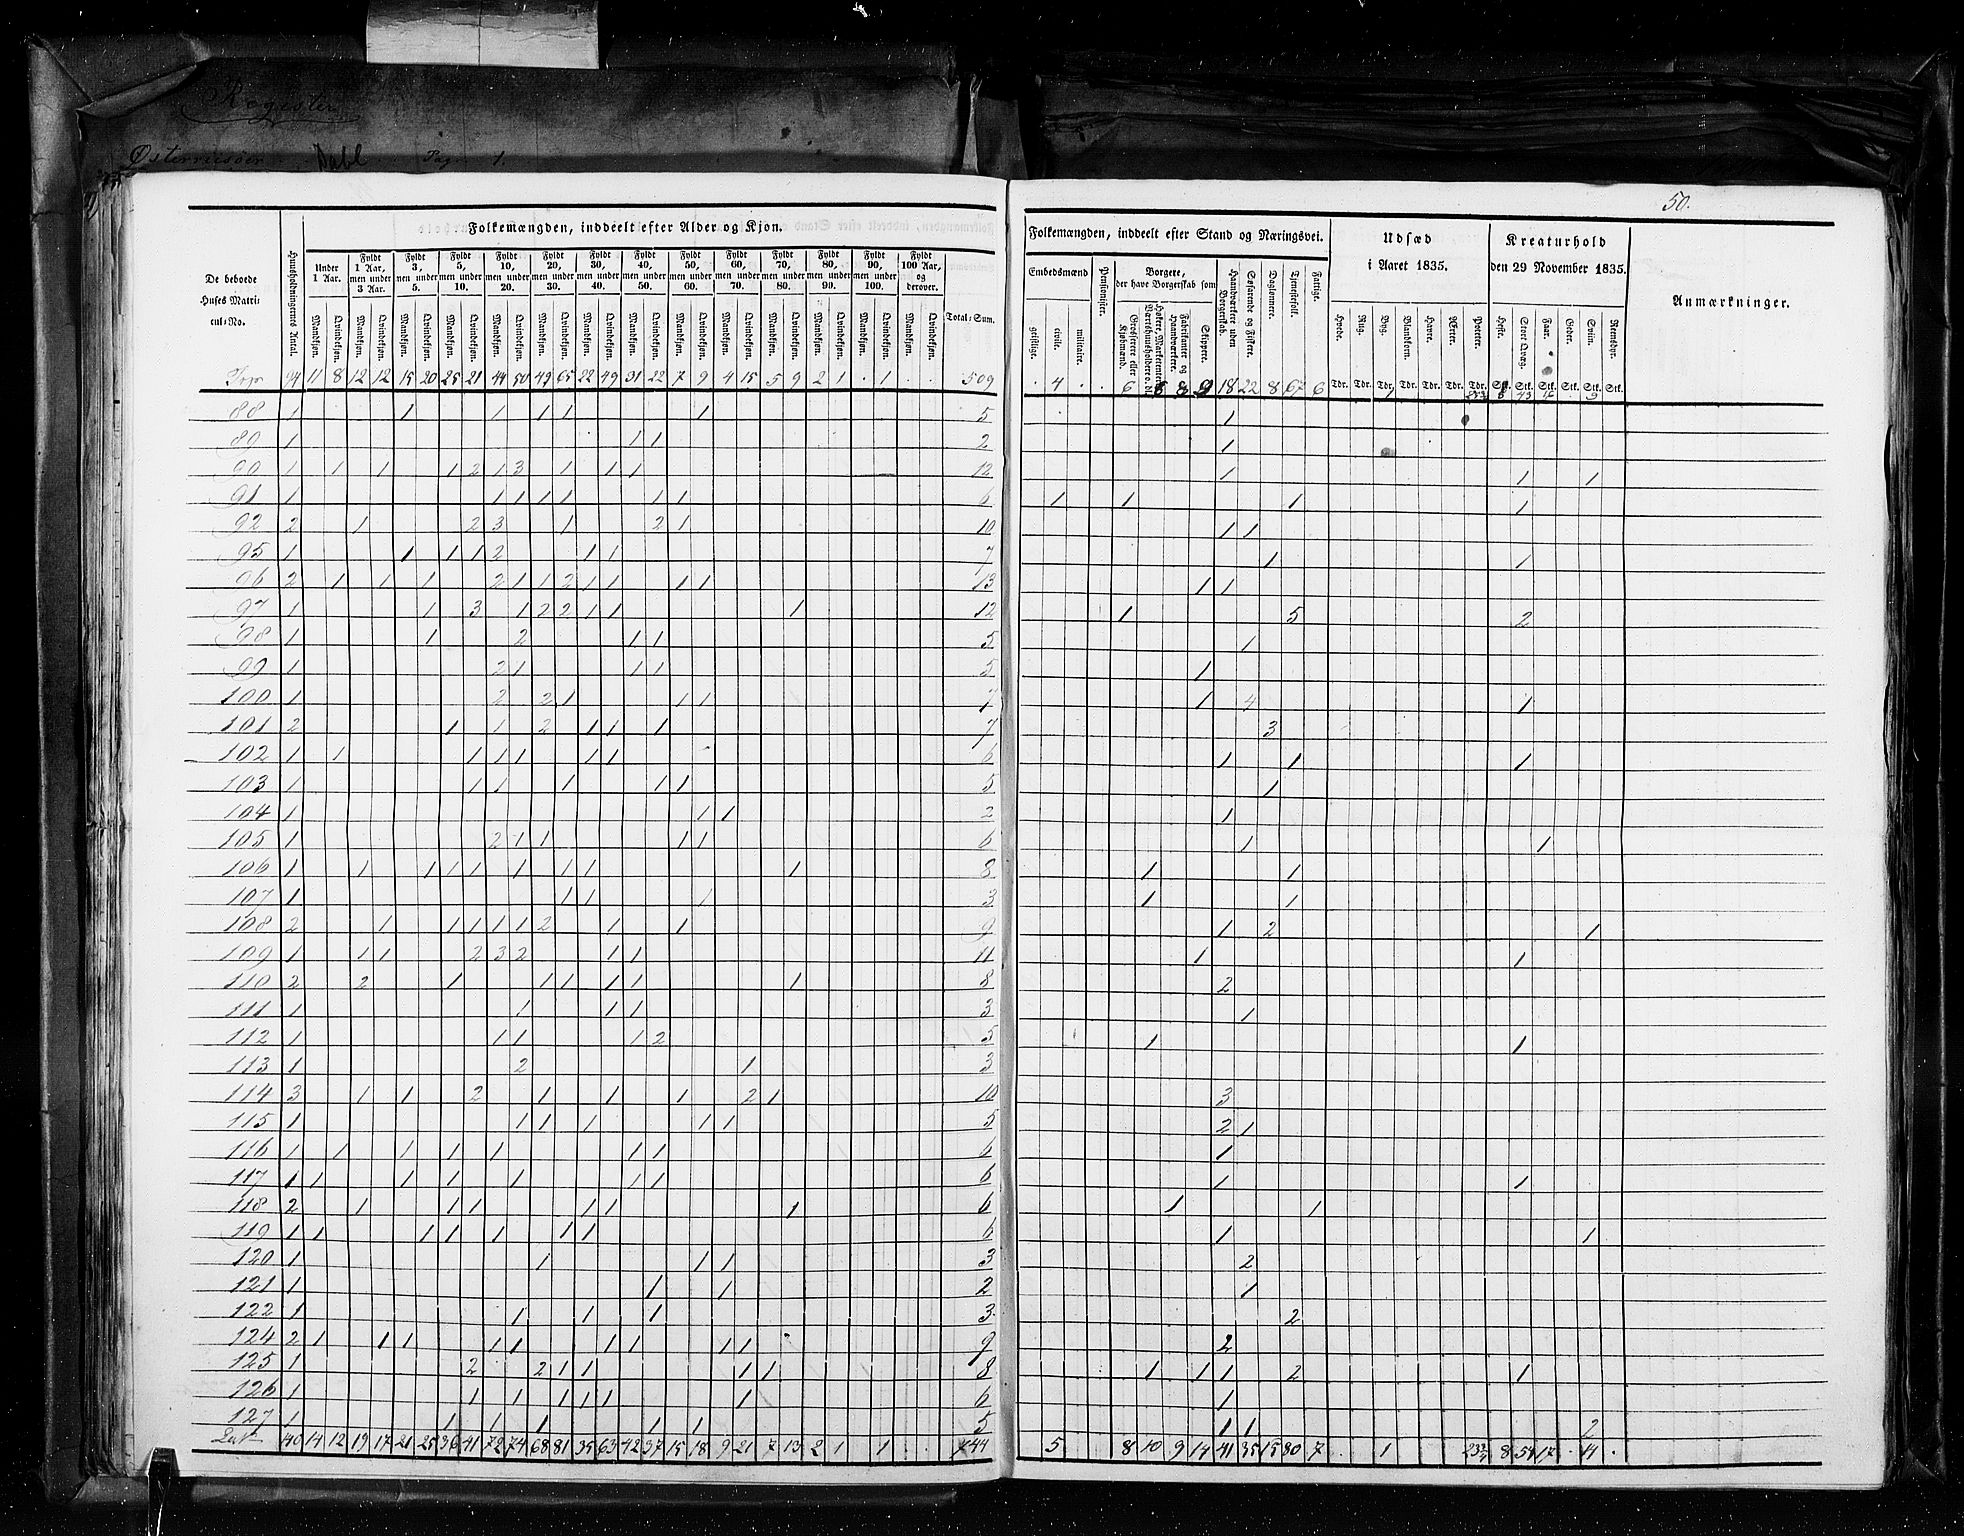 Register
Østerriisöer Dahl Pag 1.
50.
Folkemængden, inddeelt efter Alder og Kjøn.
De beboede Huses Matricul-No.
Huusholdningernes Antal.
Under 1 Aar.
Fyldt 1 Aar, men under 3 Aar.
Fyldt 3, men under 5.
Fyldt 5, men under 10.
Fyldt 10, men under 20.
Fyldt 20, men under 30.
Fyldt 30, men under 40.
Fyldt 40, men under 50.
Fyldt 50, men under 60.
Fyldt 60, men under 70.
Fyldt 70, men under 80.
Fyldt 80, men under 90.
Fyldt 90, men under 100.
Fyldt 100 Aar, og derover.
Total-Sum.
Mandkjøn. Qvindekjøn.
94 11 8 12 12 15 20 25 21 44 50 49 65 22 49 31 22 7 9 4 15 5 9 2 1 . 1 . . 509
88 1 1 1 1 1 1 5
89 1 1 1 2
90 1 1 1 1 2 1 3 1 1 1 12
91 1 1 1 1 1 1 1 6
92 2 1 2 3 1 2 1 10
95 1 1 1 1 2 1 1 7
96 2 1 1 1 2 1 1 2 1 1 1 1 13
97 1 1 3 1 2 2 1 1 1 12
98 1 1 2 1 1 5
99 1 2 1 1 1 5
100 1 2 2 1 1 1 7
101 2 1 1 2 1 1 1 7
102 1 1 1 1 1 1 1 6
103 1 1 1 1 1 1 5
104 1 1 1 2
105 1 2 1 1 1 1 6
106 1 1 1 1 1 1 1 1 1 8
107 1 1 1 1 3
108 2 1 1 1 1 1 2 1 1 9
109 1 1 1 2 3 2 1 1 11
110 2 2 1 1 1 1 1 1 8
111 1 1 1 1 3
112 1 1 1 1 2 5
113 1 2 1 3
114 3 1 1 2 1 1 1 2 1 10
115 1 1 1 1 1 1 5
116 1 1 1 1 1 1 1 6
117 1 1 1 1 1 1 1 6
118 2 1 1 1 1 1 1 6
119 1 1 1 1 1 1 1 6
120 1 1 1 1 3
121 1 1 1 2
122 1 1 1 1 3
124 2 1 1 1 1 1 1 1 1 1 9
125 1 2 2 1 1 1 1 8
126 1 1 1 1 1 1 1 6
127 1 1 1 1 1 1 5
140 14 12 19 17 21 25 36 41 72 74 68 81 35 63 42 37 15 18 9 21 7 13 2 1 1 744
Folkemængden, inddeelt efter Stand og Næringsvei.
Udsæd i Aaret 1835.
Kreaturhold den 29 November 1835.
Anmærkninger.
Embedsmænd
geistlige. civile. militaire.
Pensionister.
Borgere, der have Borgerskab som
Grosserere eller Kjøbmænd.
Høkere, Marketentere, Værtshuusholdere o. s.
Fabrikanter og Haandværkere.
Skippere.
Haandværkere uden Borgerskab.
Søfarende og Fiskere.
Daglønnere.
Tjenestefolk.
Fattige.
Hvede. Rug. Byg. Blandkorn. Havre. Ærter. Poteter.
Heste. Stort Qvæg. Faar. Geder. Sviin. Reensdyr.
Tdr. Tdr. Tdr. Tdr. Tdr. Tdr. Tdr. Stk. Stk. Stk. Stk. Stk. Stk.
. 4 . . 6 8 8 9 18 22 8 67 6 8 43 16 . 9
1
1
1 1 1
1 1 1 1
1 1
1 1
1 1
1 5 2
1
1
1 4 1
3
1 1 1
1
1
1 1
1 1
1 1
1 2 1
1 1
2
1
1 1
3
2 1
1
1 1
1 1
1 1
2
1
2
2
1 1 1 2 1
1
1 1 2
5 8 10 9 14 41 35 15 80 7 . 1 8 54 17 . 14 .